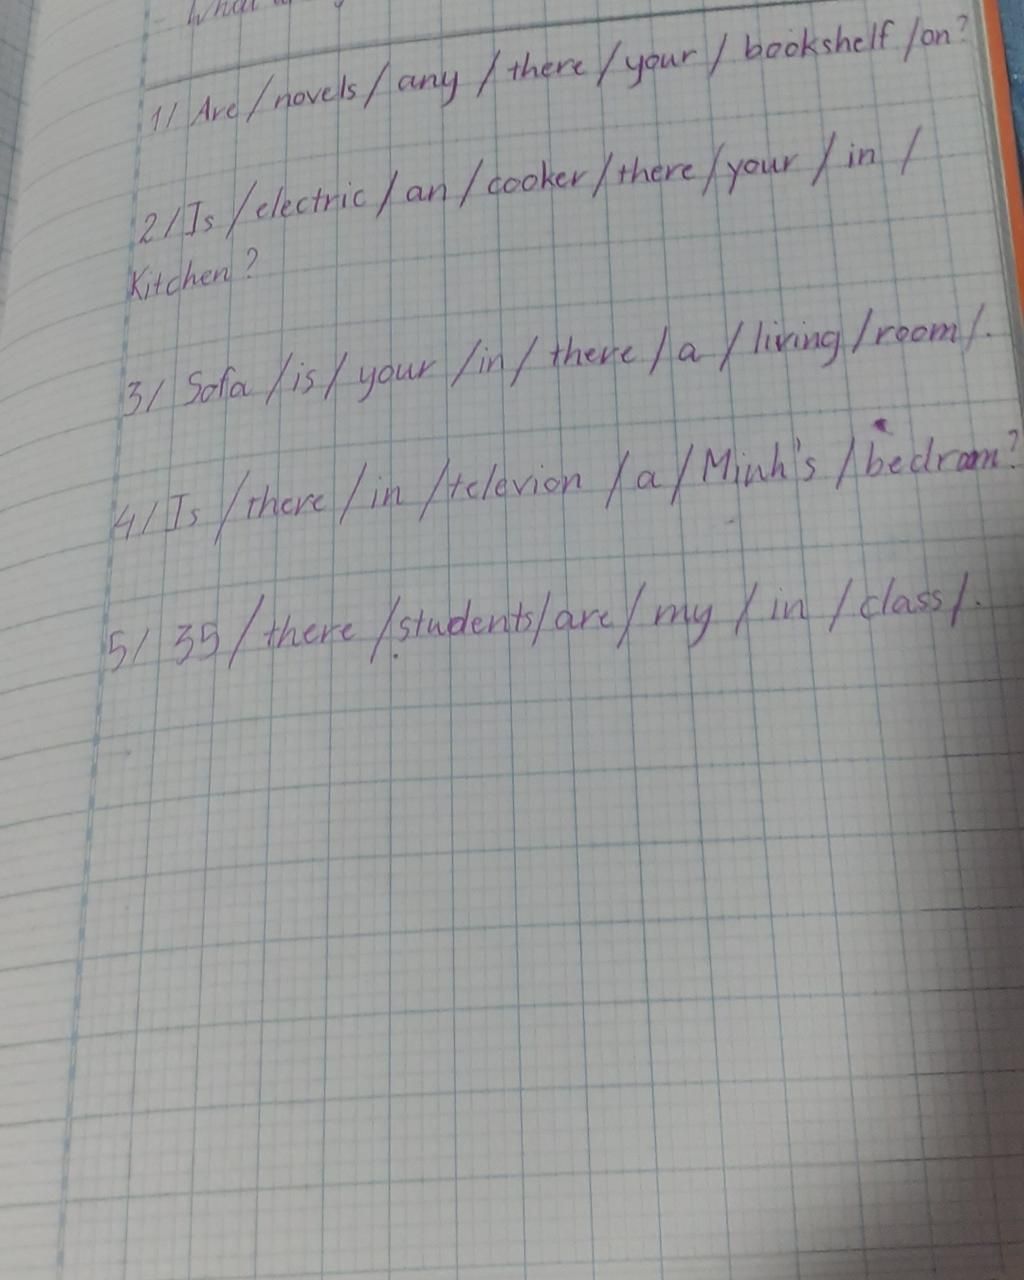 What
1/ Are / novels / any / there / your / bookshelf / on?
2/ Is / electric / an / cooker / there / your / in /
Kitchen?
3/ Sofa / is / your / in / there / a / living / room /.
4/ Is / there / in / televion / a / Minh's / bedroom?
5/ 35 / there / students / are / my / in / class /.